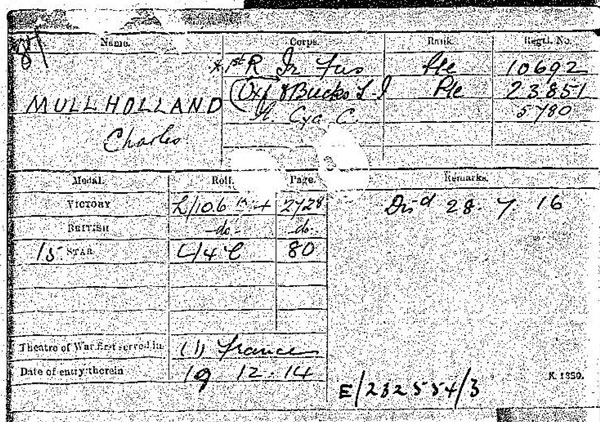 Name. Corps. Rank. Regtl. No.
* 1st R Ir Fus Pte 10692
MULLHOLLAND Oxf & Bucks L I Pte 23851
Charles Cyc C. 5780
Medal. Roll. Page. Remarks.
VICTORY 2728 Disd 28. 7. 16
BRITISH do do
15 STAR 80
Theatre of War first served in (1) France
Date of entry therein 19 12.14
E/232554/3 K. 1380.